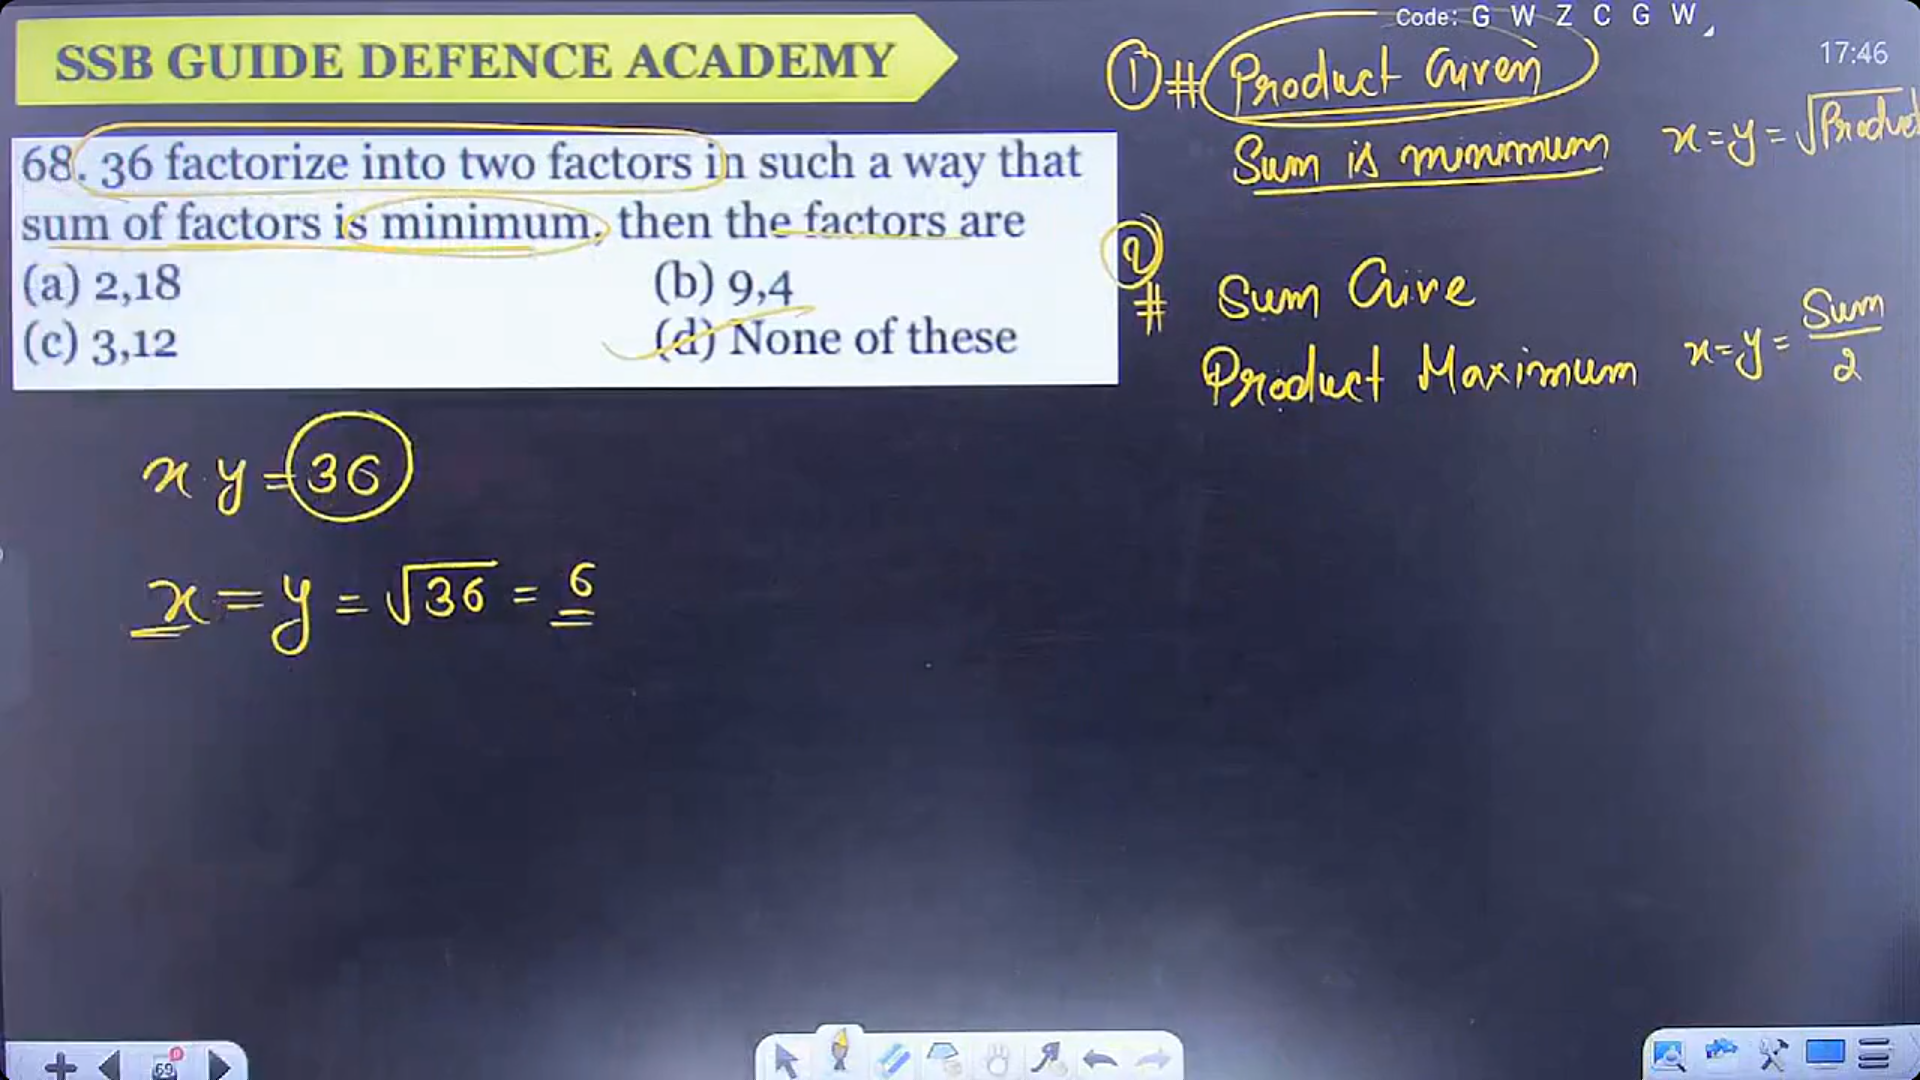 Code: G W Z C G W
17:46
SSB GUIDE DEFENCE ACADEMY
68. 36 factorize into two factors in such a way that
sum of factors is minimum, then the factors are
(a) 2,18
(b) 9,4
(c) 3,12
(d) None of these
① # Product Given
Sum is minimum x = y = √Product
②
# Sum Give
Product Maximum x = y = Sum/2
x.y = 36
x = y = √36 = 6
69